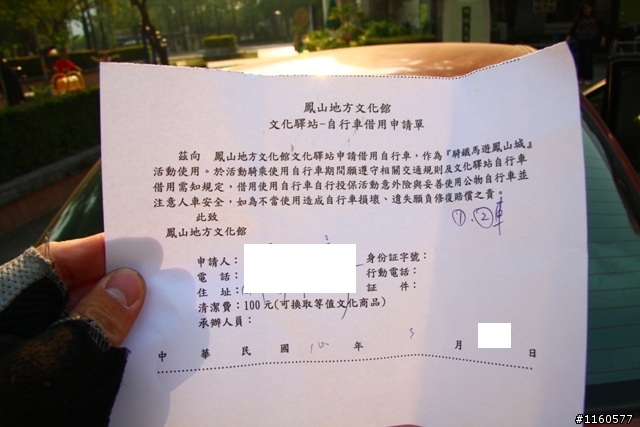 鳳山地方文化館
文化驛站-自行車借用申請單
茲向 鳳山地方文化館文化驛站申請借用自行車，作為『騎鐵馬遊鳳山城』
活動使用。於活動騎乘使用自行車期間願遵守相關交通規則及文化驛站自行車
借用需知規定，借用使用自行車自行投保活動意外險與妥善使用公物自行車並
注意人車安全，如為不當使用造成自行車損壞、遺失願負修復賠償之責。
①、②車
此致
鳳山地方文化館
申請人： 身份証字號：
電話： 行動電話：
住址： 証件：
清潔費：100元(可換取等值文化商品)
承辦人員：
中華民國 100 年 3 月 日
#1160577